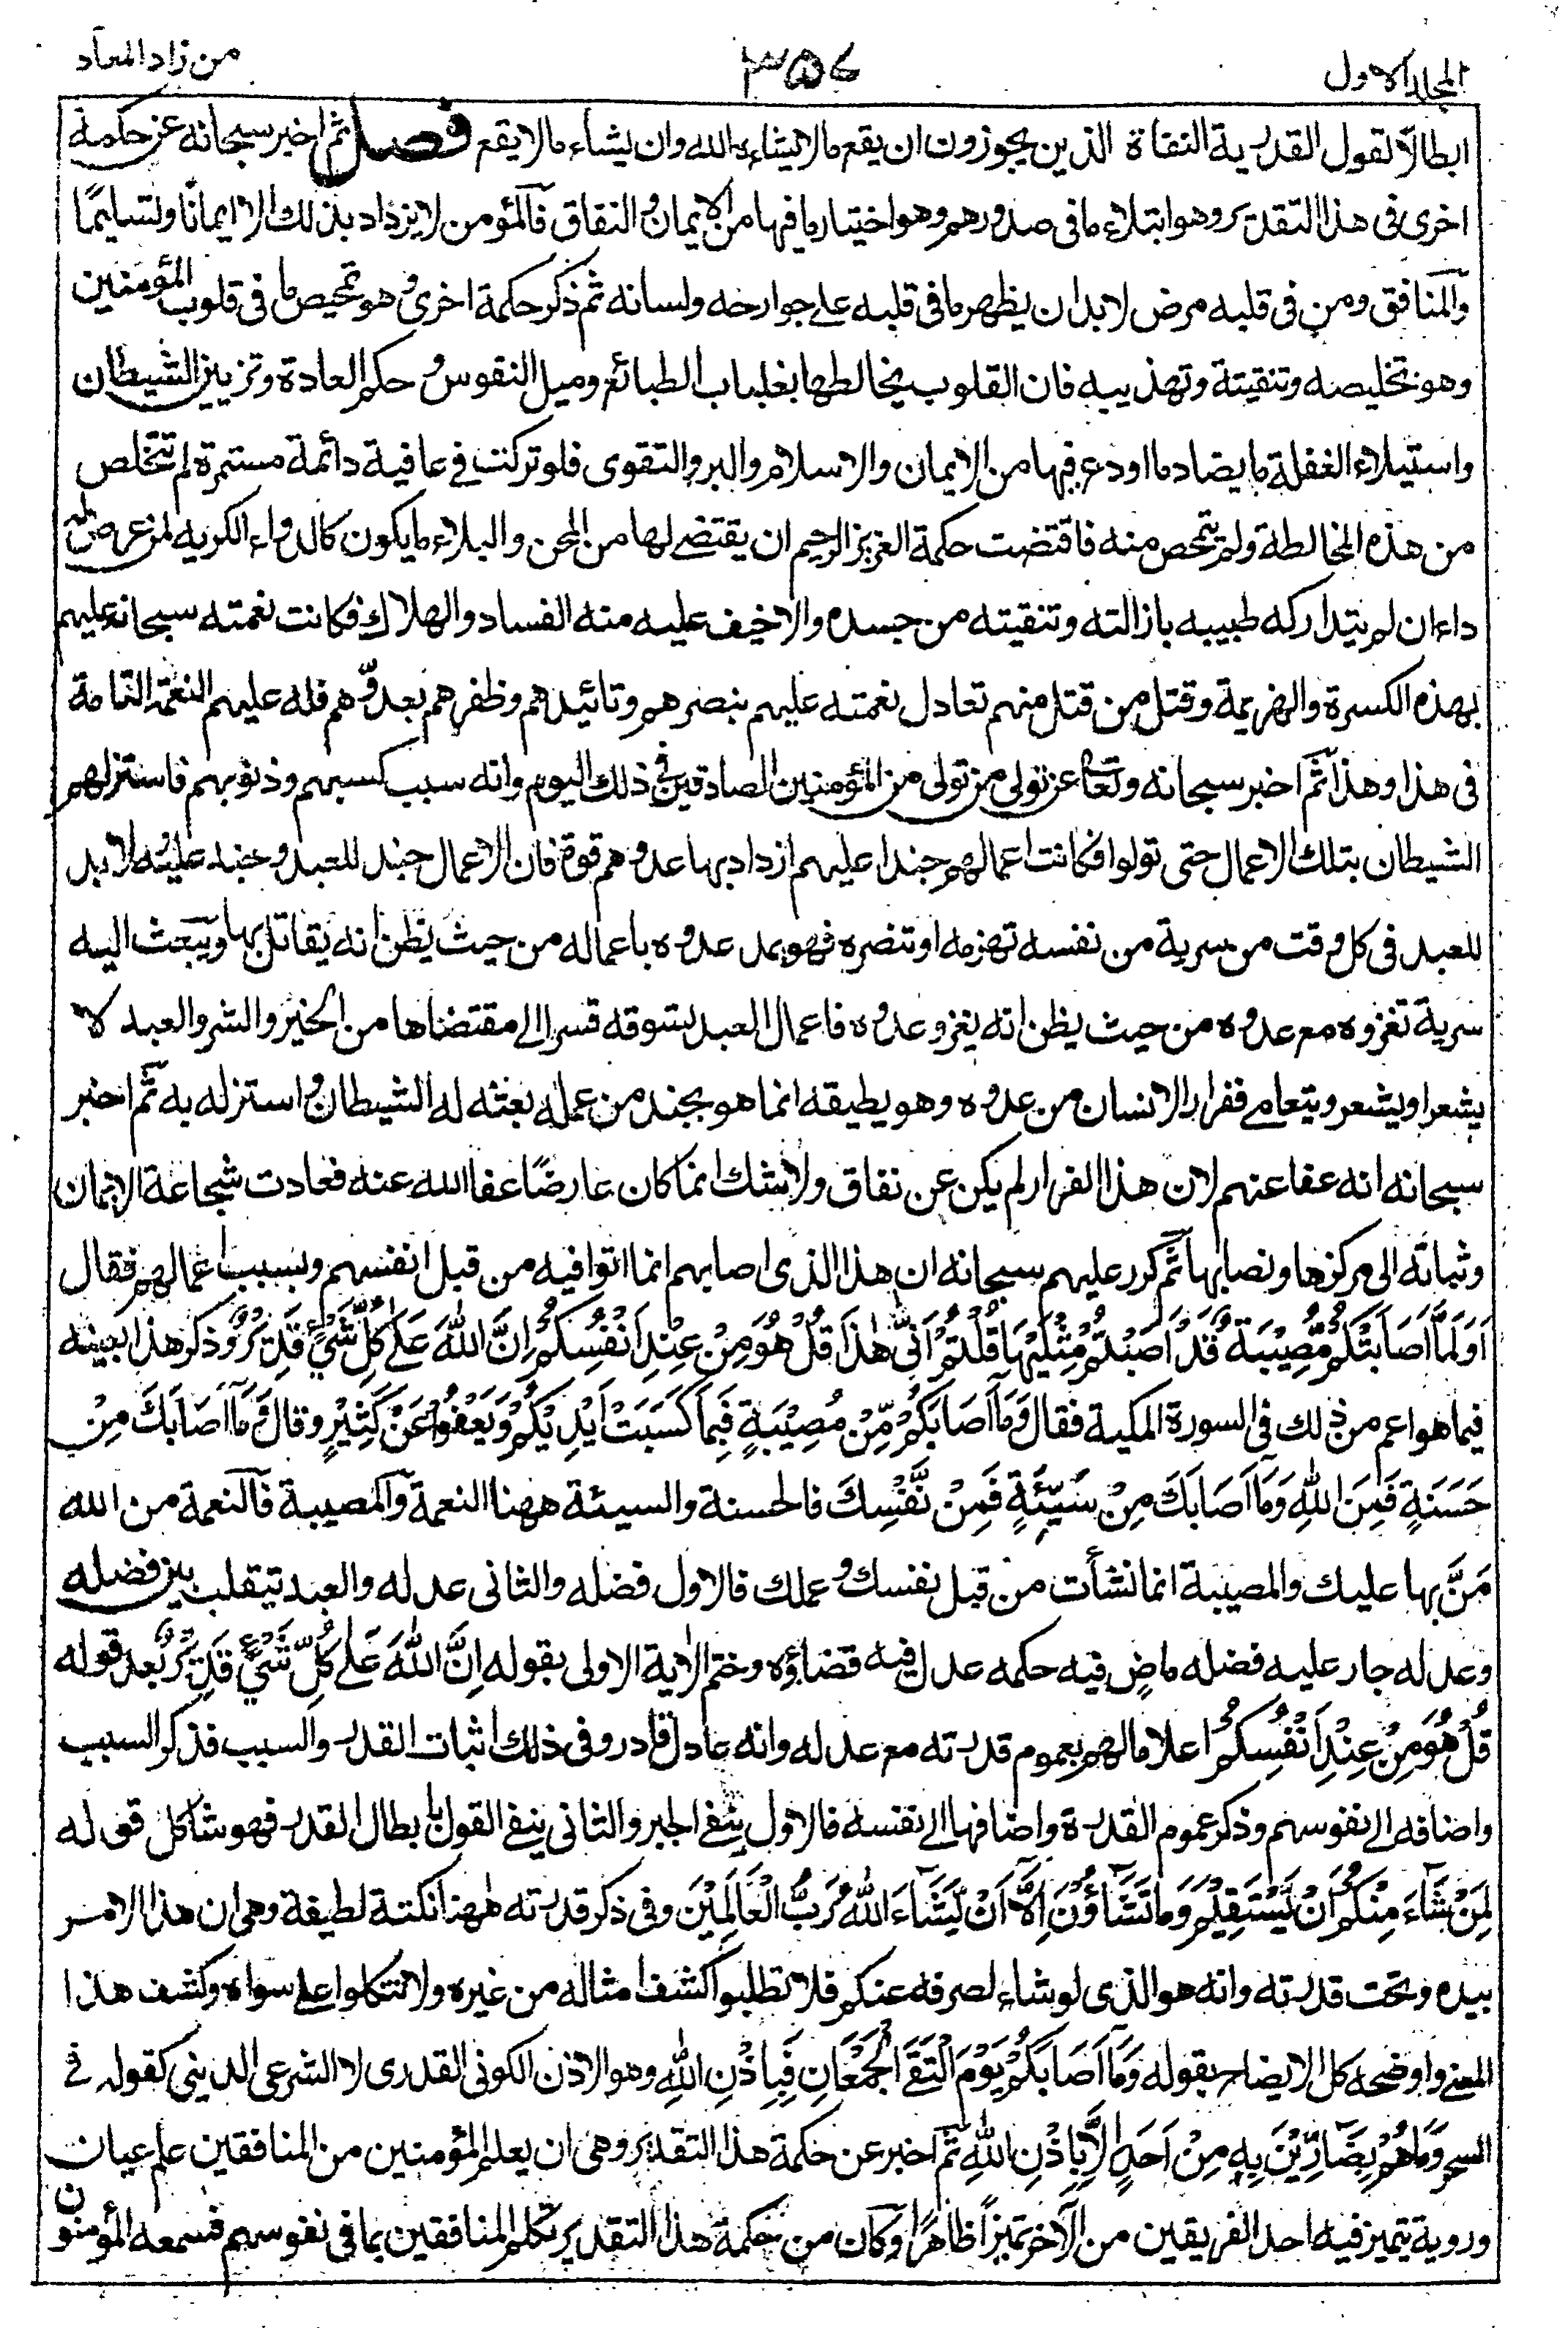 المجلد الاول
٣٥٧
من زاد المعاد
ابطالا لقول القدرية النفاة الذين يجوزون ان يقع ما لا يشاءه الله وان يشاء ما لا يقع فصل ثم اخبر سبحانه عن حكمة
اخرى فى هذا التقدير وهو ابتلاء ما فى صدورهم وهو اختيار ما فيها من الايمان والنفاق فالمؤمن لا يزداد بذلك الا ايمانًا وتسليمًا
والمنافق ومن فى قلبه مرض لا بد ان يظهر ما فى قلبه على جوارحه ولسانه ثم ذكر حكمة اخرى وهو تمحيص ما فى قلوب المؤمنين
وهو تخليصه وتنقيته وتهذيبه فان القلوب يخالطها بغلبات الطبائع وميل النفوس وحكم العادة وتزيين الشيطان
واستيلاء الغفلة ما يضاد ما اودع فيها من الايمان والاسلام والبر والتقوى فلو تركت فى عافية دائمة مستمرة لم تتخلص
من هذه المخالطة ولم تتمحص منه فاقتضت حكمة العزيز الرحيم ان يقتضى لها من المحن والبلاء ما يكون كالدواء الكريه لمن عرض له
داء ان لم يتداركه طبيبه بازالته وتنقيته من جسده والا خيف عليه منه الفساد والهلاك فكانت نعمته سبحانه عليهم
بهذه الكسرة والهزيمة وقتل من قتل منهم تعادل نعمته عليهم بنصرهم وتائيدهم وظفرهم بعدوهم فله عليهم النعمة التامة
فى هذا وهذا ثم اخبر سبحانه وتعالى عن تولى من تولى من المؤمنين الصادقين فى ذلك اليوم وانه سبب كسبهم وذنوبهم فاستزلهم
الشيطان بتلك الاعمال حتى تولوا فكانت اعمالهم جندا عليهم ازداد بها عدوهم قوة فان الاعمال جند للعبد وجند عليه ولا بد
للعبد فى كل وقت من سرية من نفسه تهزمه او تنصره فهو يمد عدوه باعماله من حيث يظن انه يقاتل بها ويبعث اليه
سرية تغزوه مع عدوه من حيث يظن انه يغزو عدوه فاعمال العبد تسوقه قسرا الى مقتضاها من الخير والشر والعبد لا
يشعر او يشعر ويتعامى ففرار الانسان من عدوه وهو يطيقه انما هو بجند من عمله بعثه له الشيطان واستزله به ثم اخبر
سبحانه انه عفا عنهم لان هذا الفرار لم يكن عن نفاق ولا شك انما كان عارضًا عفا الله عنه فعادت شجاعة الايمان
وثباته الى مركزها ونصابها ثم كرر عليهم سبحانه ان هذا الذى اصابهم انما اتوا فيه من قبل انفسهم وبسبب اعمالهم فقال
اَوَلَمَّا اَصَابَتْكُمْ مُّصِيْبَةٌ قَدْ اَصَبْتُمْ مِّثْلَيْهَا قُلْتُمْ اَنّٰى هٰذَا قُلْ هُوَ مِنْ عِنْدِ اَنْفُسِكُمْ اِنَّ اللّٰهَ عَلٰى كُلِّ شَىْءٍ قَدِيْرٌ وذكر هذا بعينه
فيما هو اعم من ذلك فى السورة المكية فقال وَمَا اَصَابَكُمْ مِّنْ مُصِيْبَةٍ فَبِمَا كَسَبَتْ اَيْدِيْكُمْ وَيَعْفُوْا عَنْ كَثِيْرٍ وقال وَمَا اَصَابَكَ مِنْ
حَسَنَةٍ فَمِنَ اللّٰهِ وَمَا اَصَابَكَ مِنْ سَيِّئَةٍ فَمِنْ نَّفْسِكَ فالحسنة والسيئة ههنا النعمة والمصيبة فالنعمة من الله
مَنَّ بها عليك والمصيبة انما نشأت من قبل نفسك وعملك فالاول فضله والثانى عدله والعبد يتقلب بين فضله
وعدله جار عليه فضله ماضٍ فيه حكمه عدل فيه قضاؤه وختم الاية الاولى بقوله اِنَّ اللّٰهَ عَلٰى كُلِّ شَىْءٍ قَدِيْرٌ بعد قوله
قُلْ هُوَ مِنْ عِنْدِ اَنْفُسِكُمْ اعلاما لهم بعموم قدرته مع عدله وانه عادل قادر وفى ذلك اثبات القدر والسبب فذكر السبب
واضافه الى نفوسهم وذكر عموم القدرة واضافها الى نفسه فالاول ينفى الجبر والثانى ينفى القول بابطال القدر فهو شاكل قوله
لِمَنْ شَآءَ مِنْكُمْ اَنْ يَّسْتَقِيْمَ وَمَا تَشَآؤُنَ اِلَّا اَنْ يَّشَآءَ اللّٰهُ رَبُّ الْعَالَمِيْنَ وفى ذكر قدرته ههنا نكتة لطيفة وهى ان هذا الامر
بيده وتحت قدرته وانه هو الذى لو شاء لصرفه عنكم فلا تطلبوا كشف امثاله من غيره ولا تتكلوا على سواه وكشف هذا
المعنى واوضحه كل الايضاح بقوله وَمَا اَصَابَكُمْ يَوْمَ الْتَقَى الْجَمْعَانِ فَبِاِذْنِ اللّٰهِ وهو الاذن الكونى القدرى لا الشرعى الدينى كقوله فى
السحر وَمَا هُمْ بِضَآرِّيْنَ بِهٖ مِنْ اَحَدٍ اِلَّا بِاِذْنِ اللّٰهِ ثم اخبر عن حكمة هذا التقدير وهى ان يعلم المؤمنين من المنافقين علم عيان
وروية يتميز فيه احد الفريقين من الآخر تميزًا ظاهرًا وكان من حكمة هذا التقدير تكلم المنافقين بما فى نفوسهم فسمعه المؤمنون